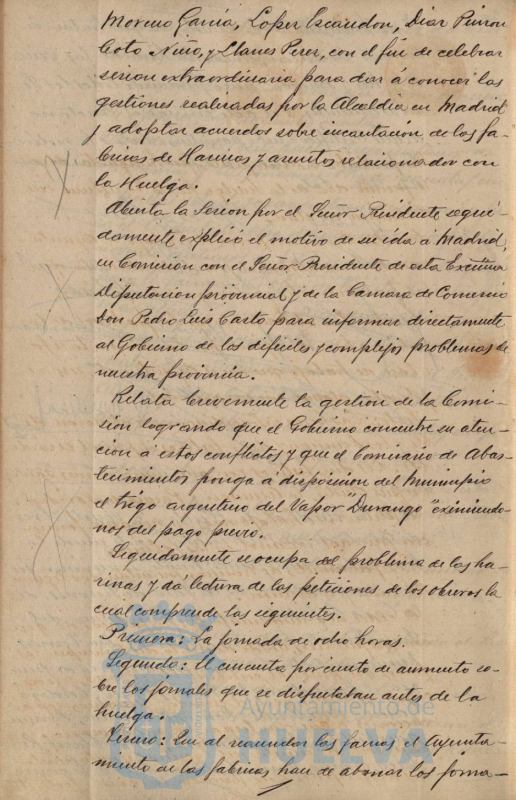 Moreno García, Lopez Escaudon, Diaz Pinzon
Coto Niño, y Llanes Perez, con el fin de celebrar
sesion extraordinaria para dar á conocer las
gestiones realizadas por la Alcaldia en Madrid
y adoptar acuerdos sobre incautacion de las fa-
bricas de Harinas y asuntos relacionados con
la Huelga.
Abierta la Sesion por el Señor Presidente segui-
damente explicó el motivo de su ida á Madrid,
en Comision con el Señor Presidente de esta Excma
Diputacion provincial y de la Camara de Comercio
Don Pedro Luis Casto para informar directamente
al Gobierno de los dificiles y complejos problemas de
nuestra provincia.
Relata brevemente la gestion de la Comi-
sion logrando que el Gobierno concentre su aten-
cion á estos conflictos y que el Comisario de Abas-
tecimientos ponga á disposicion del Municipio
el trigo argentino del Vapor "Durango" eximiendo-
nos del pago previo.
Seguidamente se ocupa del problema de las ha-
rinas y dá lectura de las peticiones de los obreros la
cual comprende las siguientes.
Primera: La jornada de ocho horas.
Segunda: El cincuenta por ciento de aumento so-
bre los jornales que se disfrutaban antes de la
huelga.
Tercero: Que al reanudar las faenas el Ayunta-
miento de las fabricas, han de abonar los jorna-
Ayuntamiento de
HUELVA